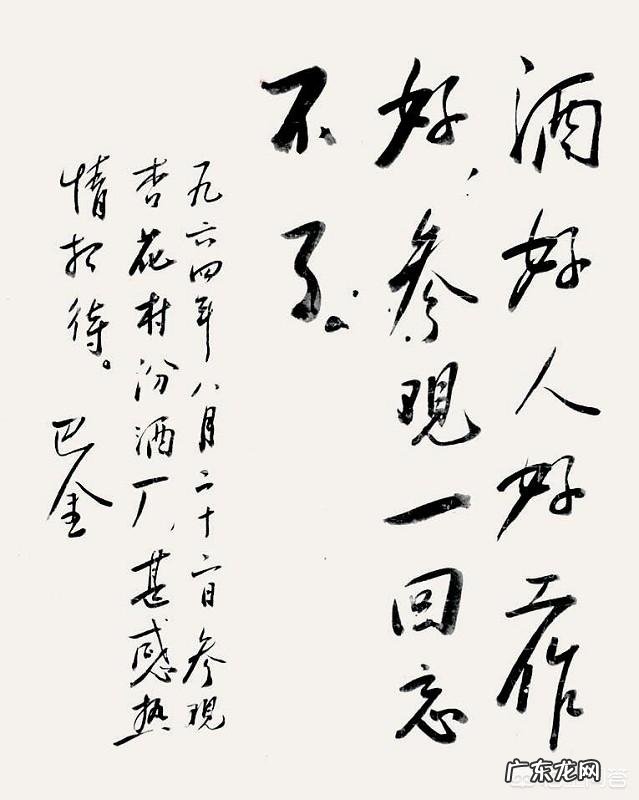 酒好人好工作
好，参观一回忘
不了。
九六四年八月二十二日参观
杏花村汾酒厂，甚感热
情招待。
巴金
广东龙网